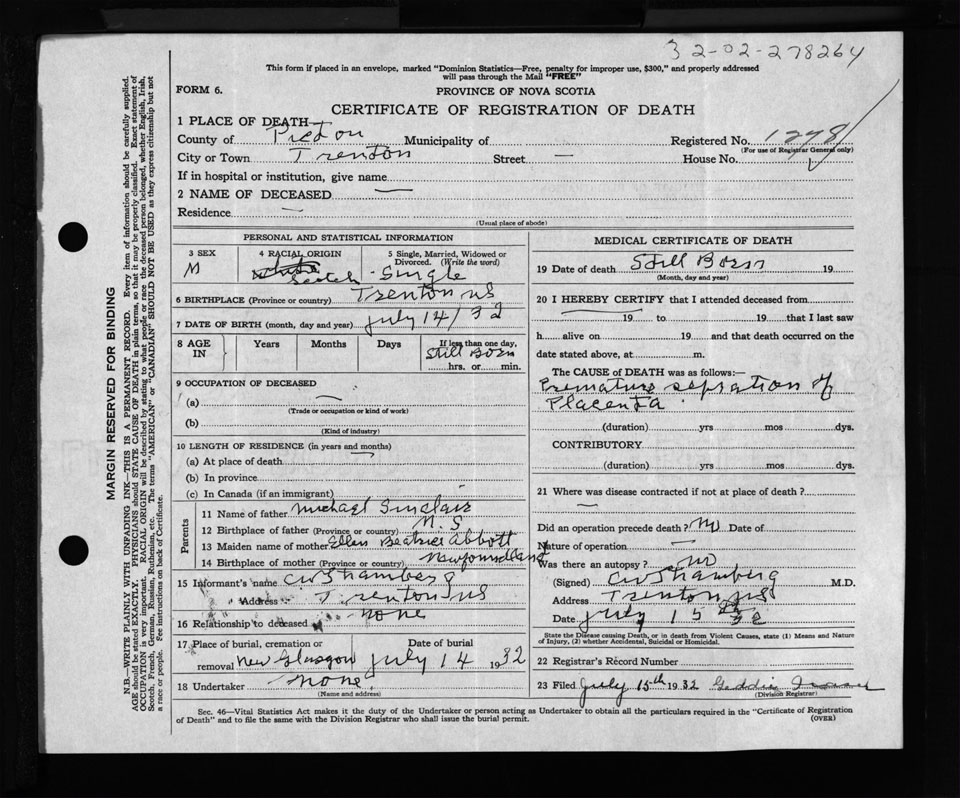 32-02-278264
This form if placed in an envelope, marked "Dominion Statistics—Free, penalty for improper use, $300," and properly addressed
will pass through the Mail "FREE"
FORM 6.
PROVINCE OF NOVA SCOTIA
CERTIFICATE OF REGISTRATION OF DEATH
1 PLACE OF DEATH
County of Pictou Municipality of Registered No. 1278
(For use of Registrar General only)
City or Town Trenton Street — House No.
If in hospital or institution, give name
2 NAME OF DECEASED —
Residence —
(Usual place of abode)
PERSONAL AND STATISTICAL INFORMATION
3 SEX
M
4 RACIAL ORIGIN
white
Scotch
5 Single, Married, Widowed or
Divorced. (Write the word)
Single
6 BIRTHPLACE (Province or country) Trenton NS
7 DATE OF BIRTH (month, day and year) July 14/32
8 AGE
IN
Years Months Days
If less than one day,
Still Born
hrs. or min.
9 OCCUPATION OF DECEASED
(a) —
(Trade or occupation or kind of work)
(b)
(Kind of industry)
10 LENGTH OF RESIDENCE (in years and months)
(a) At place of death
(b) In province
(c) In Canada (if an immigrant)
Parents
11 Name of father Michael Sinclair
12 Birthplace of father (Province or country) N.S
13 Maiden name of mother Ellen Beatrice Abbott
14 Birthplace of mother (Province or country) Newfoundland
15 Informant's name CW Stramberg
Address Trenton NS
16 Relationship to deceased none
17 Place of burial, cremation or
removal New Glasgow
Date of burial
July 14 1932
18 Undertaker none
(Name and address)
MEDICAL CERTIFICATE OF DEATH
19 Date of death Still Born 19
(Month, day and year)
20 I HEREBY CERTIFY that I attended deceased from
19 to 19 that I last saw
h alive on 19 and that death occurred on the
date stated above, at m.
The CAUSE OF DEATH was as follows:
Premature sepration of
Placenta
(duration) yrs mos dys.
CONTRIBUTORY
(duration) yrs mos dys.
21 Where was disease contracted if not at place of death?
—
Did an operation precede death? No Date of
Nature of operation —
Was there an autopsy? No
(Signed) CW Stramberg M.D.
Address Trenton NS
Date July 15th 32
State the Disease causing Death, or in death from Violent Causes, state (1) Means and Nature
of Injury, (2) whether Accidental, Suicidal or Homicidal.
22 Registrar's Record Number
23 Filed July 15th 1932 Geddie
(Division Registrar)
Sec. 46—Vital Statistics Act makes it the duty of the Undertaker or person acting as Undertaker to obtain all the particulars required in the "Certificate of Registration
of Death" and to file the same with the Division Registrar who shall issue the burial permit.
(OVER)
MARGIN RESERVED FOR BINDING
N.B.—WRITE PLAINLY WITH UNFADING INK—THIS IS A PERMANENT RECORD. Every item of information should be carefully supplied.
AGE should be stated EXACTLY. PHYSICIANS should STATE CAUSE OF DEATH in plain terms, so that it may be properly classified. Exact statement of
OCCUPATION is very important. RACIAL ORIGIN will be described by stating to what people or race the deceased person belonged, whether English, Irish,
Scotch, French, German, Russian, Ruthenian, etc. The terms "AMERICAN" or "CANADIAN" SHOULD NOT BE USED as they express citizenship but not
a race or people. See instructions on back of Certificate.